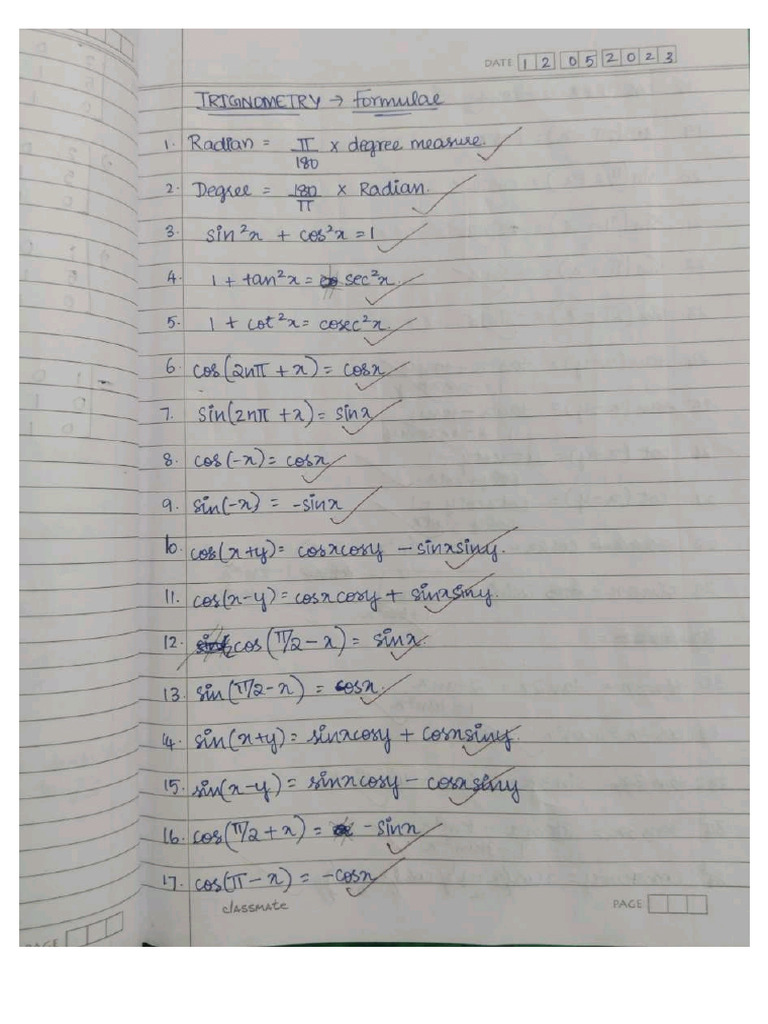 DATE 12 05 2023
TRIGNOMETRY → Formulae
1. Radian = π/180 x degree measure.
2. Degree = 180/π x Radian.
3. sin²x + cos²x = 1
4. 1 + tan²x = sec²x.
5. 1 + cot²x = cosec²x.
6. cos(2nπ + x) = cosx
7. sin(2nπ + x) = sinx
8. cos(-x) = cosx
9. sin(-x) = -sinx
10. cos(x+y) = cosxcosy - sinxsiny.
11. cos(x-y) = cosxcosy + sinxsiny.
12. cos(π/2 - x) = sinx.
13. sin(π/2 - x) = cosx.
14. sin(x+y) = sinxcosy + cosxsiny.
15. sin(x-y) = sinxcosy - cosxsiny
16. cos(π/2 + x) = -sinx
17. cos(π - x) = -cosx
classmate
PAGE
PAGE